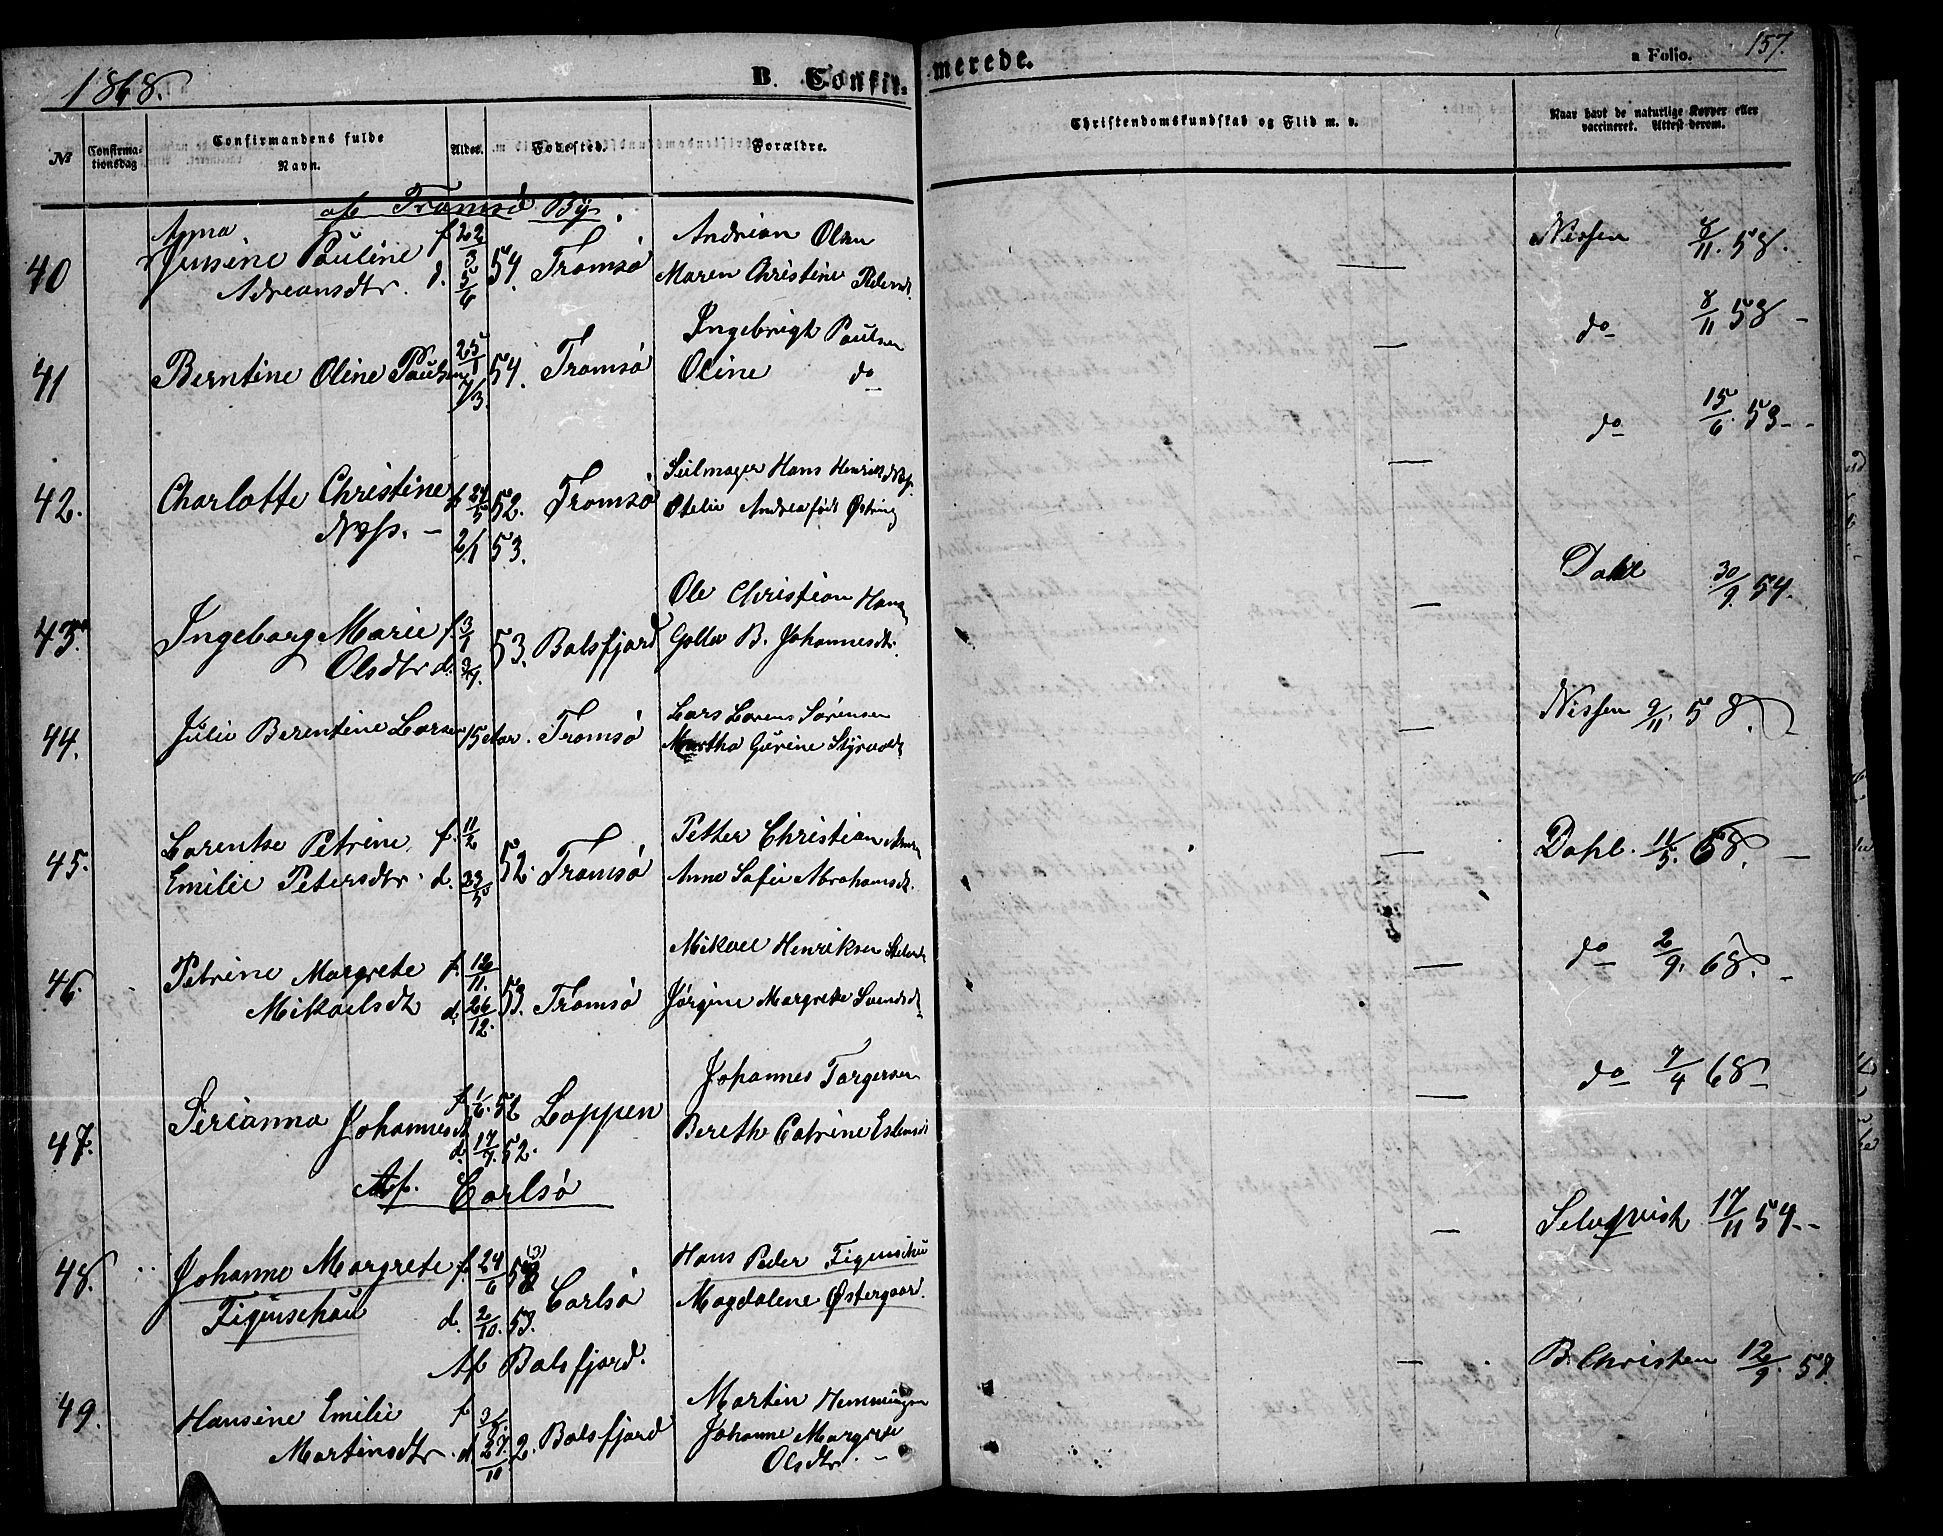 1868.
B. Confir-
merede.
a Folio. 157.
№
Confirma-
tionsdag
Confirmandens fulde
Navn.
Alder.
Fødested.
Forældre.
Christendomskundskab og Flid m. v.
Naar havt de naturlige Kopper eller
vaccineret. Attest derom.
af Tromsø By.
40 Anna
Jensine Pauline f. 22/3 54. Tromsø Andrian Olsen Nissen 8/11. 58.
Adreansdtr. d. 5/6 Maren Christine
41 Berntine Oline Paulsen 25/1 54. Tromsø Ingebrigt Paulsen do 8/11 58 -
7/3. Oline do
42. Charlotte Christine f. 24/5 52. Tromsø Hans Henrik Næss. do 15/6. 53 - -
Næss. - 2/1 53. Otelie Andrea født Østring
43. Ingeborg Marie f. 3/1 53. Balsfjord Ole Christian Hansen Dahl 30/9. 54.
Olsdtr d. 3/4. Golla B. Johannesdtr.
44. Julie Berentine Larsen 15 Aar. Tromsø Lars Lorens Sørensen Nissen 9/11. 58.
Martha Gurine
45. Larentse Petrine f. 11/2 52. Tromsø Petter Christian Dahl. 11/5. 68. -
Emilie Petersdtr. d. 23/5 Anne Sofie Abrahamsdt.
46. Petrine Margrete f. 12/11. 53. Tromsø Mikael Henriksen do 2/9. 68. -
Mikaelsdt d. 26/12. Jørgine Margrete Svendsdt.
47. Serianna Johannesdt f. 1/6. 52 Loppen Johannes Torgersen do 7/4 68 -
d. 17/7. 52. Bereth Catrine Estensdt
Af. Carlsø
48. Johanne Margrete f. 24/6 53 (3) Carlsø Hans Peder Figenschu Selnqvist 17/11 54 - -
Figenschau d. 2/10. 53. Magdalene Østergaard.
Af Balsfjord.
49. Hansine Emilie f 3/8. Balsfjord Martin Hemmingsen B. Christen 12/9. 57.
Martinsdtr. d. 27/10 2. Johanne Margrete
Olsdtr. -